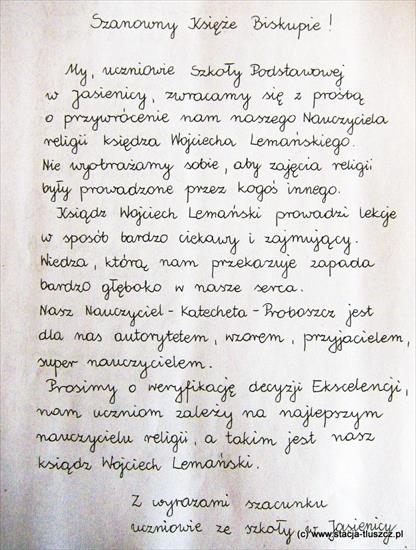 Szanowny Księże Biskupie!
My, uczniowie Szkoły Podstawowej
w Jasienicy, zwracamy się z prośbą
o przywrócenie nam naszego Nauczyciela
religii księdza Wojciecha Lemańskiego.
Nie wyobrażamy sobie, aby zajęcia religii
były prowadzone przez kogoś innego.
Ksiądz Wojciech Lemański prowadzi lekcje
w sposób bardzo ciekawy i zajmujący.
Wiedza, którą nam przekazuje zapada
bardzo głęboko w nasze serca.
Nasz Nauczyciel - Katecheta - Proboszcz jest
dla nas autorytetem, wzorem, przyjacielem,
super nauczycielem.
Prosimy o weryfikację decyzji Ekscelencji,
nam uczniom zależy na najlepszym
nauczycielu religii, a takim jest nasz
ksiądz Wojciech Lemański.
Z wyrazami szacunku
uczniowie ze szkoły w Jasienicy
(c) www.stacja-tluszcz.pl